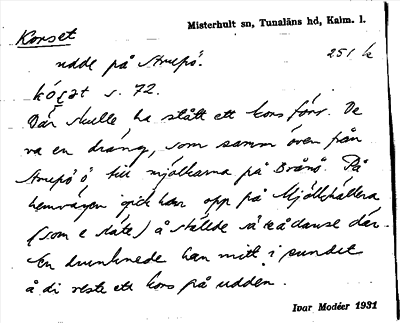 Misterhult sn, Tunaläns hd, Kalm. l.
Korset
udde på Strupö.
251 k
s. 72.
Där skulle ha stått ett kors förr. De
va en dräng, som samm över från
Strupö, till mjölkarna på Brånö. På
hemvägen gick han opp på Mjölkhällera
(som e släte) å skålade så rå dause där.
En drunknede han mitt i sundet
å di reste ett kors på udden.
Ivar Modéer 1931